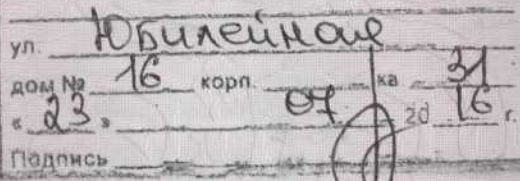 ул. Юбилейная
дом № 16 корп. кв 31
« 23 » 07 20 16 г.
Подпись